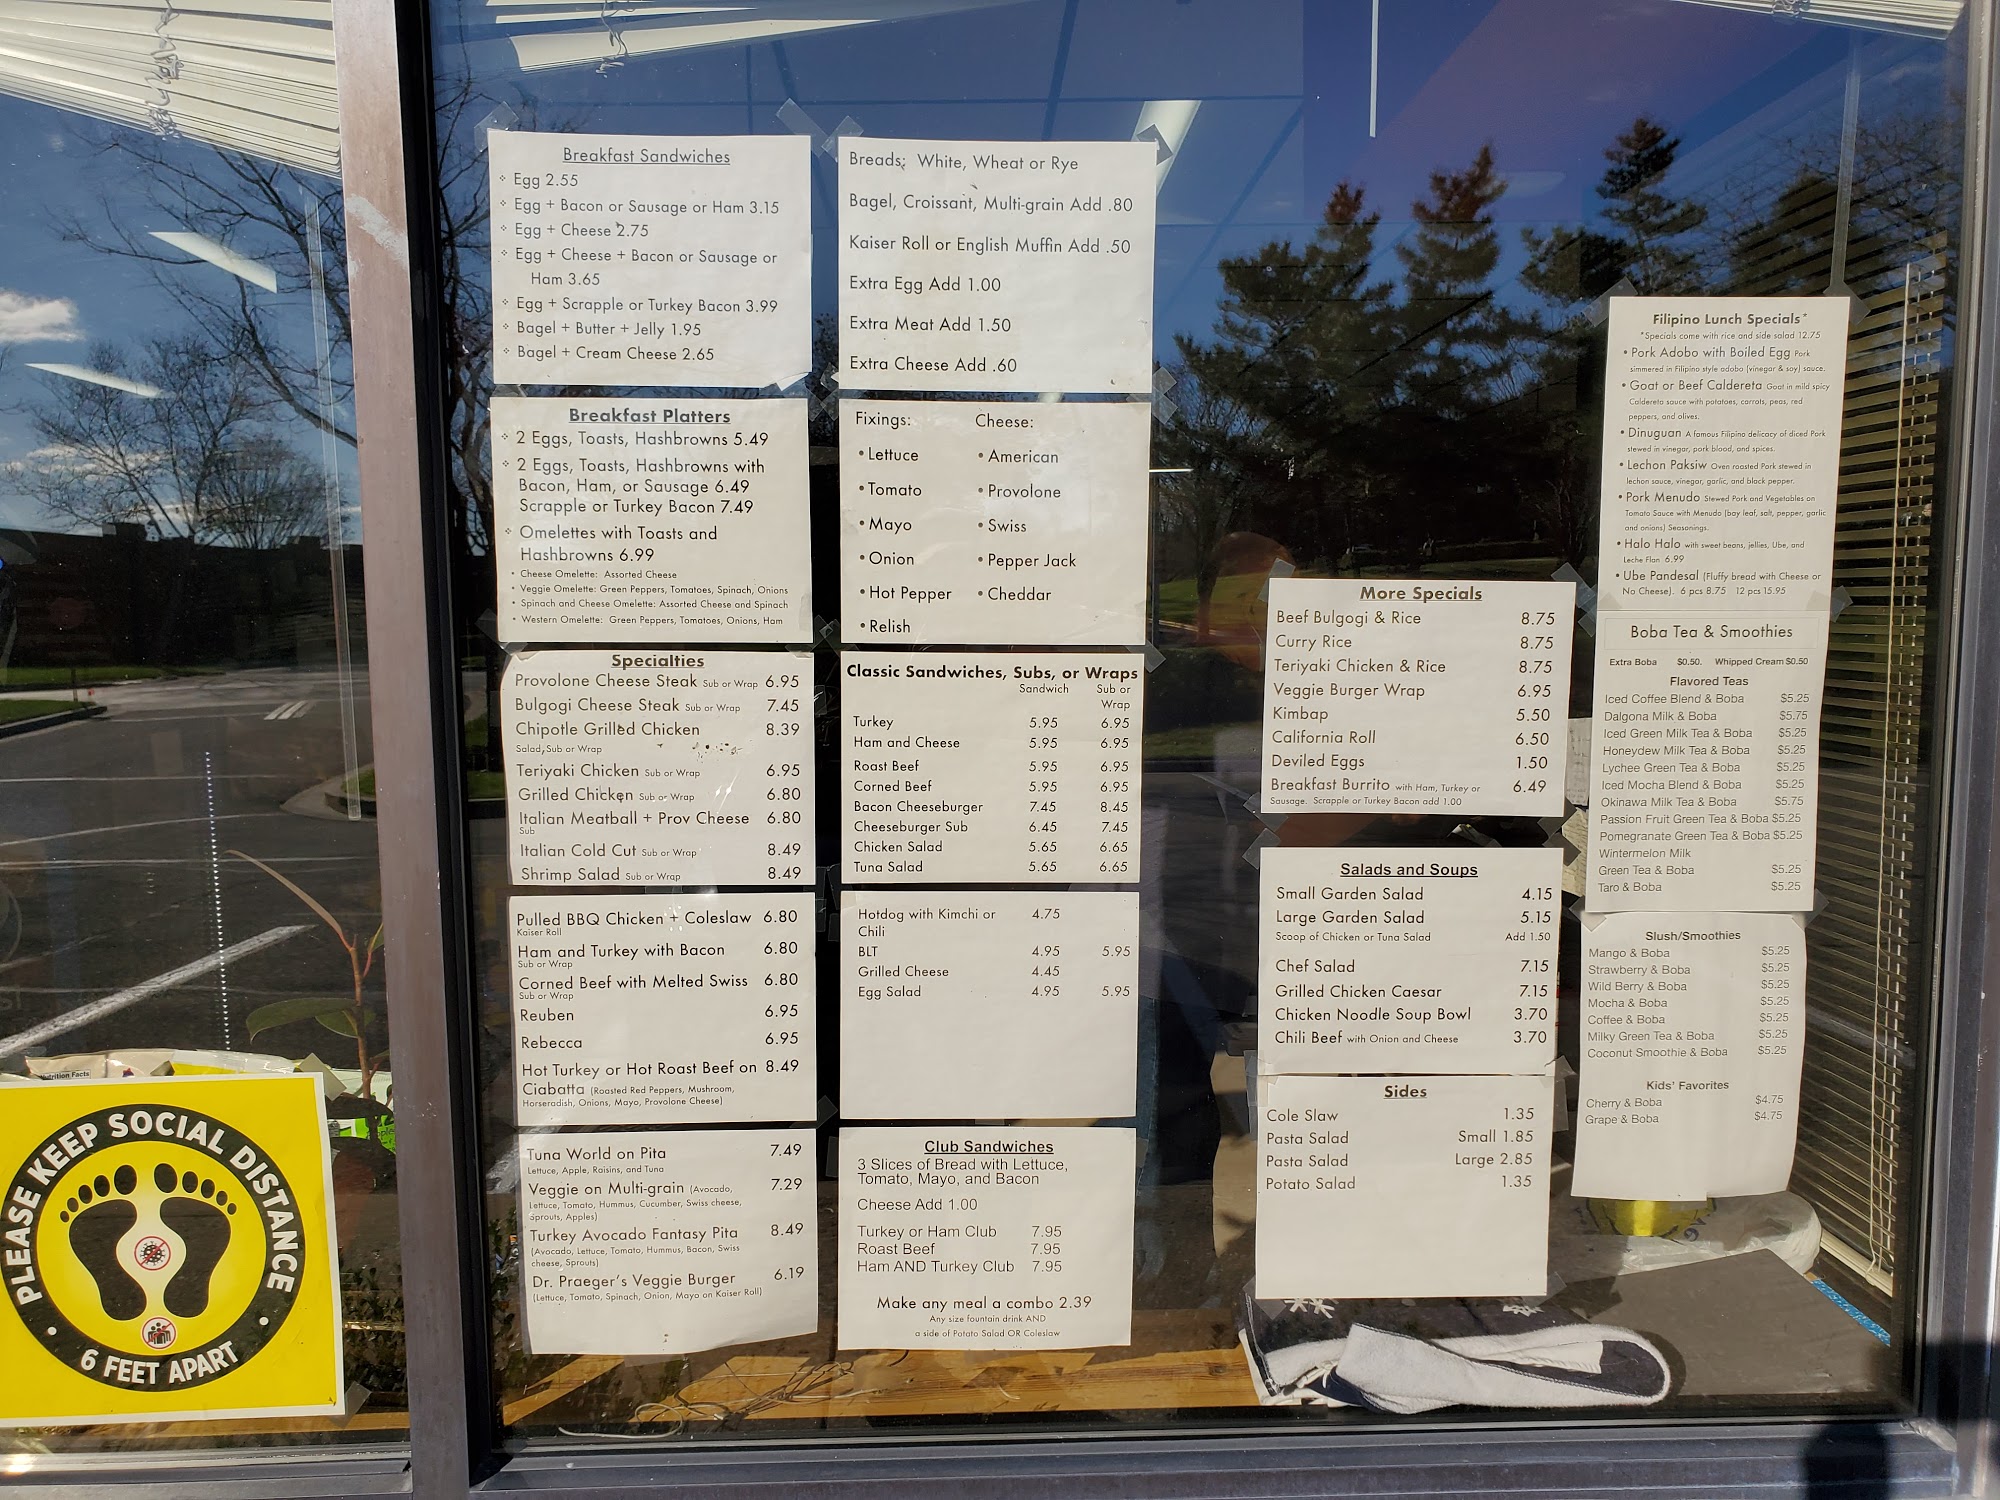 Breakfast Sandwiches
Egg 2.55
Egg + Bacon or Sausage or Ham 3.15
Egg + Cheese 2.75
Egg + Cheese + Bacon or Sausage or
Ham 3.65
Egg + Scrapple or Turkey Bacon 3.99
Bagel + Butter + Jelly 1.95
Bagel + Cream Cheese 2.65
Breakfast Platters
2 Eggs, Toasts, Hashbrowns 5.49
2 Eggs, Toasts, Hashbrowns with
Bacon, Ham, or Sausage 6.49
Scrapple or Turkey Bacon 7.49
Omelettes with Toasts and
Hashbrowns 6.99
• Cheese Omelette: Assorted Cheese
• Veggie Omelette: Green Peppers, Tomatoes, Spinach, Onions
• Spinach and Cheese Omelette: Assorted Cheese and Spinach
• Western Omelette: Green Peppers, Tomatoes, Onions, Ham
Specialties
Provolone Cheese Steak Sub or Wrap 6.95
Bulgogi Cheese Steak Sub or Wrap 7.45
Chipotle Grilled Chicken 8.39
Salad, Sub or Wrap
Teriyaki Chicken Sub or Wrap 6.95
Grilled Chicken Sub or Wrap 6.80
Italian Meatball + Prov Cheese 6.80
Sub
Italian Cold Cut Sub or Wrap 8.49
Shrimp Salad Sub or Wrap 8.49
Pulled BBQ Chicken + Coleslaw 6.80
Kaiser Roll
Ham and Turkey with Bacon 6.80
Sub or Wrap
Corned Beef with Melted Swiss 6.80
Sub or Wrap
Reuben 6.95
Rebecca 6.95
Hot Turkey or Hot Roast Beef on 8.49
Ciabatta (Roasted Red Peppers, Mushroom,
Horseradish, Onions, Mayo, Provolone Cheese)
Tuna World on Pita 7.49
Lettuce, Apple, Raisins, and Tuna
Veggie on Multi-grain (Avocado, 7.29
Lettuce, Tomato, Hummus, Cucumber, Swiss cheese,
Sprouts, Apples)
Turkey Avocado Fantasy Pita 8.49
(Avocado, Lettuce, Tomato, Hummus, Bacon, Swiss
cheese, Sprouts)
Dr. Praeger's Veggie Burger 6.19
(Lettuce, Tomato, Spinach, Onion, Mayo on Kaiser Roll)
Breads: White, Wheat or Rye
Bagel, Croissant, Multi-grain Add .80
Kaiser Roll or English Muffin Add .50
Extra Egg Add 1.00
Extra Meat Add 1.50
Extra Cheese Add .60
Fixings: Cheese:
• Lettuce • American
• Tomato • Provolone
• Mayo • Swiss
• Onion • Pepper Jack
• Hot Pepper • Cheddar
• Relish
Classic Sandwiches, Subs, or Wraps
Sandwich Sub or
Wrap
Turkey 5.95 6.95
Ham and Cheese 5.95 6.95
Roast Beef 5.95 6.95
Corned Beef 5.95 6.95
Bacon Cheeseburger 7.45 8.45
Cheeseburger Sub 6.45 7.45
Chicken Salad 5.65 6.65
Tuna Salad 5.65 6.65
Hotdog with Kimchi or 4.75
Chili
BLT 4.95 5.95
Grilled Cheese 4.45
Egg Salad 4.95 5.95
Club Sandwiches
3 Slices of Bread with Lettuce,
Tomato, Mayo, and Bacon
Cheese Add 1.00
Turkey or Ham Club 7.95
Roast Beef 7.95
Ham AND Turkey Club 7.95
Make any meal a combo 2.39
Any size fountain drink AND
a side of Potato Salad OR Coleslaw
More Specials
Beef Bulgogi & Rice 8.75
Curry Rice 8.75
Teriyaki Chicken & Rice 8.75
Veggie Burger Wrap 6.95
Kimbap 5.50
California Roll 6.50
Deviled Eggs 1.50
Breakfast Burrito with Ham, Turkey or 6.49
Sausage. Scrapple or Turkey Bacon add 1.00
Salads and Soups
Small Garden Salad 4.15
Large Garden Salad 5.15
Scoop of Chicken or Tuna Salad Add 1.50
Chef Salad 7.15
Grilled Chicken Caesar 7.15
Chicken Noodle Soup Bowl 3.70
Chili Beef with Onion and Cheese 3.70
Sides
Cole Slaw 1.35
Pasta Salad Small 1.85
Pasta Salad Large 2.85
Potato Salad 1.35
Filipino Lunch Specials*
*Specials come with rice and side salad 12.75
• Pork Adobo with Boiled Egg Pork
simmered in Filipino style adobo (vinegar & soy) sauce.
• Goat or Beef Caldereta Goat in mild spicy
Caldereta sauce with potatoes, carrots, peas, red
peppers, and olives.
• Dinuguan A famous Filipino delicacy of diced Pork
stewed in vinegar, pork blood, and spices.
• Lechon Paksiw Oven roasted Pork stewed in
lechon sauce, vinegar, garlic, and black pepper.
• Pork Menudo Stewed Pork and Vegetables on
Tomato Sauce with Menudo (bay leaf, salt, pepper, garlic
and onions) Seasonings.
• Halo Halo with sweet beans, jellies, Ube, and
Leche Flan 6.99
• Ube Pandesal (Fluffy bread with Cheese or
No Cheese). 6 pcs 8.75 12 pcs 15.95
Boba Tea & Smoothies
Extra Boba $0.50. Whipped Cream $0.50
Flavored Teas
Iced Coffee Blend & Boba $5.25
Dalgona Milk & Boba $5.75
Iced Green Milk Tea & Boba $5.25
Honeydew Milk Tea & Boba $5.25
Lychee Green Tea & Boba $5.25
Iced Mocha Blend & Boba $5.25
Okinawa Milk Tea & Boba $5.75
Passion Fruit Green Tea & Boba $5.25
Pomegranate Green Tea & Boba $5.25
Wintermelon Milk
Green Tea & Boba $5.25
Taro & Boba $5.25
Slush/Smoothies
Mango & Boba $5.25
Strawberry & Boba $5.25
Wild Berry & Boba $5.25
Mocha & Boba $5.25
Coffee & Boba $5.25
Milky Green Tea & Boba $5.25
Coconut Smoothie & Boba $5.25
Kids' Favorites
Cherry & Boba $4.75
Grape & Boba $4.75
Nutrition Facts
PLEASE KEEP SOCIAL DISTANCE
• 6 FEET APART •